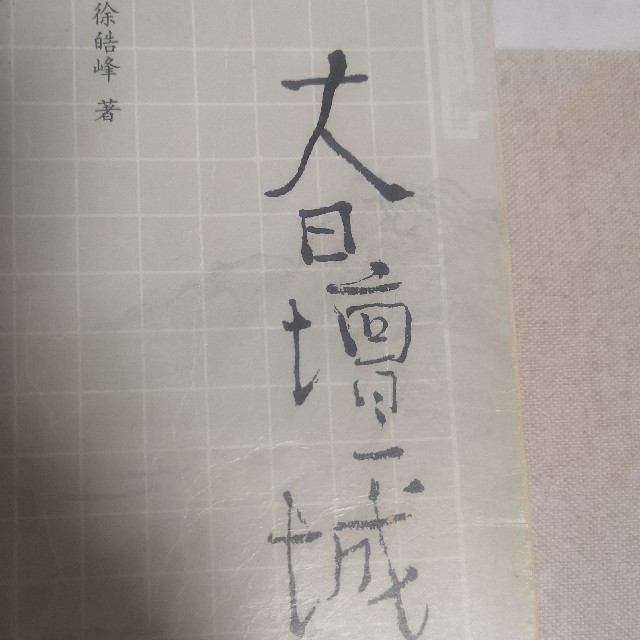 大日壇城
徐皓峰 著